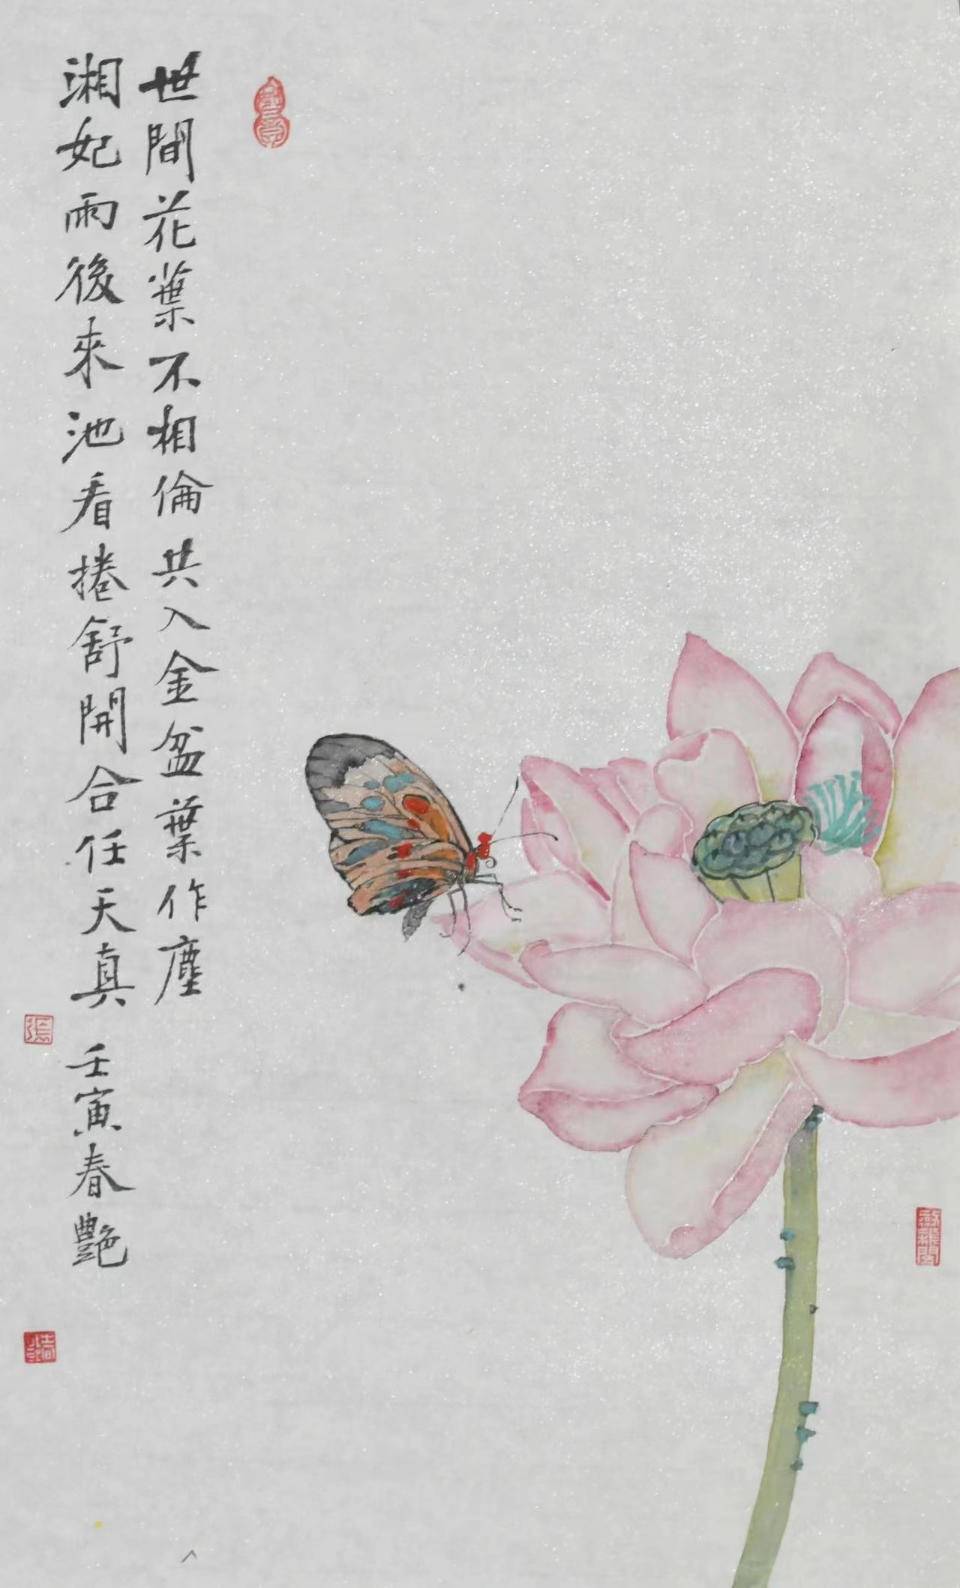 世間花葉不相倫共入金盆葉作塵
湘妃雨後來池看捲舒開合任天真
壬寅春艷
張